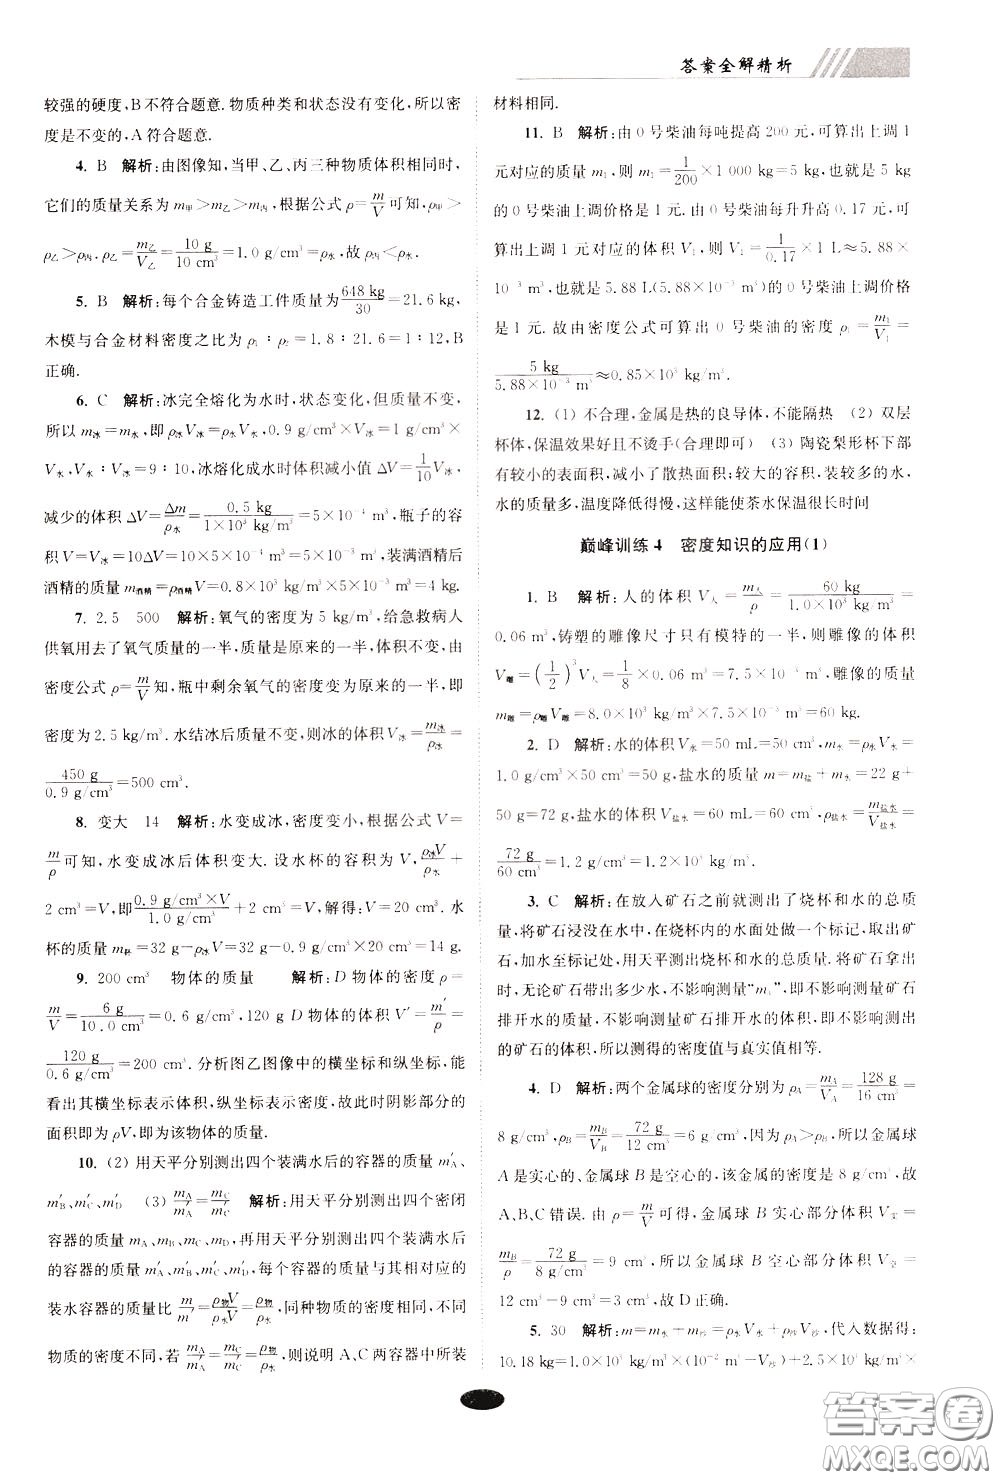 答案全解精析
较强的硬度,B不符合题意.物质种类和状态没有变化,所以密
度是不变的,A符合题意.
4. B 解析:由图像知,当甲、乙、丙三种物质体积相同时,
它们的质量关系为m甲>m乙>m丙,根据公式ρ=m/V可知,ρ甲>
ρ乙>ρ丙.ρ乙=m乙/V乙=10 g/10 cm³=1.0 g/cm³=ρ水,故ρ丙<ρ水.
5. B 解析:每个合金铸造工件质量为648 kg/30=21.6 kg,
木模与合金材料密度之比为ρ₁∶ρ₂=1.8∶21.6=1∶12,B
正确.
6. C 解析:冰完全熔化为水时,状态变化,但质量不变,
所以m冰=m水,即ρ冰V冰=ρ水V水,0.9 g/cm³×V冰=1.0 g/cm³×
V水,V水∶V冰=9∶10,冰熔化成水时体积减小值ΔV=1/10V冰,
减少的体积ΔV=Δm/ρ水=0.5 kg/1×10³ kg/m³=5×10⁻⁴ m³,瓶子的容
积V=V冰=10ΔV=10×5×10⁻⁴ m³=5×10⁻³ m³,装满酒精后
酒精的质量m酒精=ρ酒精V=0.8×10³ kg/m³×5×10⁻³ m³=4 kg.
7. 2.5 500 解析:氧气的密度为5 kg/m³,给急救病人
供氧用去了氧气质量的一半,质量是原来的一半,体积不变,由
密度公式ρ=m/V知,瓶中剩余氧气的密度变为原来的一半,即
密度为2.5 kg/m³.水结冰后质量不变,则冰的体积V冰=m冰/ρ冰=
450 g/0.9 g/cm³=500 cm³.
8. 变大 14 解析:水变成冰,密度变小,根据公式V=
m/ρ可知,水变成冰后体积变大.设水杯的容积为V,ρ冰V/ρ水+
2 cm³=V,即0.9 g/cm³×V/1.0 g/cm³+2 cm³=V,解得:V=20 cm³.水
杯的质量m杯=32 g-ρ冰V=32 g-0.9 g/cm³×20 cm³=14 g.
9. 200 cm³ 物体的质量 解析:D物体的密度ρ=
m/V=6 g/10.0 cm³=0.6 g/cm³,120 g D物体的体积V′=m′/ρ=
120 g/0.6 g/cm³=200 cm³.分析图乙图像中的横坐标和纵坐标,能
看出其横坐标表示体积,纵坐标表示密度,故此时阴影部分的
面积即为ρV,即为该物体的质量.
10. (2) 用天平分别测出四个装满水后的容器的质量m′A、
m′B、m′C、m′D (3) mA/m′A=mC/m′C 解析:用天平分别测出四个密闭
容器的质量mA、mB、mC、mD,再用天平测出四个装满水后
的容器的质量m′A、m′B、m′C、m′D,每个容器的质量与其相对应的
装水容器的质量比m/m′=ρ物V/ρ水V=ρ物/ρ水,同种物质的密度相同,不同
物质的密度不同,若mA/m′A=mC/m′C=ρ物/ρ水,则说明A、C两容器中所装
材料相同.
11. B 解析:由0号柴油每吨提高200元,可算出上调1
元对应的质量m₁,则m₁=1/200×1 000 kg=5 kg,也就是5 kg
的0号柴油上调价格是1元.由0号柴油每升升高0.17元,可
算出上调1元对应的体积V₁,则V₁=1/0.17×1 L≈5.88×
10⁻³ m³,也就是5.88 L(5.88×10⁻³ m³)的0号柴油上调价格
是1元.故由密度公式可算出0号柴油的密度ρ₁=m₁/V₁=
5 kg/5.88×10⁻³ m³≈0.85×10³ kg/m³.
12. (1) 不合理,金属是热的良导体,不能隔热 (2) 双层
杯体,保温效果好且不烫手(合理即可) (3) 陶瓷梨形杯下部
有较小的表面积,减小了散热面积;较大的容积,装较多的水,
水的质量多,温度降低得慢,这样能使茶水保温很长时间
巅峰训练4 密度知识的应用(1)
1. B 解析:人的体积V人=m人/ρ=60 kg/1.0×10³ kg/m³=
0.06 m³,铸塑的雕像尺寸只有模特的一半,则雕像的体积
V雕=(1/2)³V人=1/8×0.06 m³=7.5×10⁻³ m³,雕像的质量
m雕=ρ雕V雕=8.0×10³ kg/m³×7.5×10⁻³ m³=60 kg.
2. D 解析:水的体积V水=50 mL=50 cm³,m水=ρ水V水=
1.0 g/cm³×50 cm³=50 g,盐水的质量m=m盐+m水=22 g+
50 g=72 g,盐水的体积V盐水=60 mL=60 cm³,ρ盐水=m盐水/V盐水=
72 g/60 cm³=1.2 g/cm³=1.2×10³ kg/m³.
3. C 解析:在放入矿石之前就测出了烧杯和水的总质
量,将矿石浸没在水中,在烧杯内的水面处做一个标记,取出矿
石,加水至标记处,用天平测出烧杯和水的总质量.将矿石拿出
时,无论矿石带出多少水,不影响测量“m₁”,即不影响测量矿石
排开水的质量,不影响测量矿石排开水的体积,即不影响测出
的矿石的体积,所以测得的密度值与真实值相等.
4. D 解析:两个金属球的密度分别为ρA=mA/VA=128 g/16 cm³=
8 g/cm³,ρB=mB/VB=72 g/12 cm³=6 g/cm³,因为ρA>ρB,所以金属球
A是实心的、金属球B是空心的,该金属的密度是8 g/cm³,故
A、B、C错误.由ρ=m/V可得,金属球B实心部分体积V实=
mB/ρ=72 g/8 g/cm³=9 cm³,所以金属球B空心部分体积V空=
12 cm³-9 cm³=3 cm³,故D正确.
5. 30 解析:m=m水+m砂=ρ水V水+ρ砂V砂,代入数据得:
10.18 kg=1.0×10³ kg/m³×(10⁻² m³-V砂)+2.5×10³ kg/m³×
答案圈
MXQE.COM